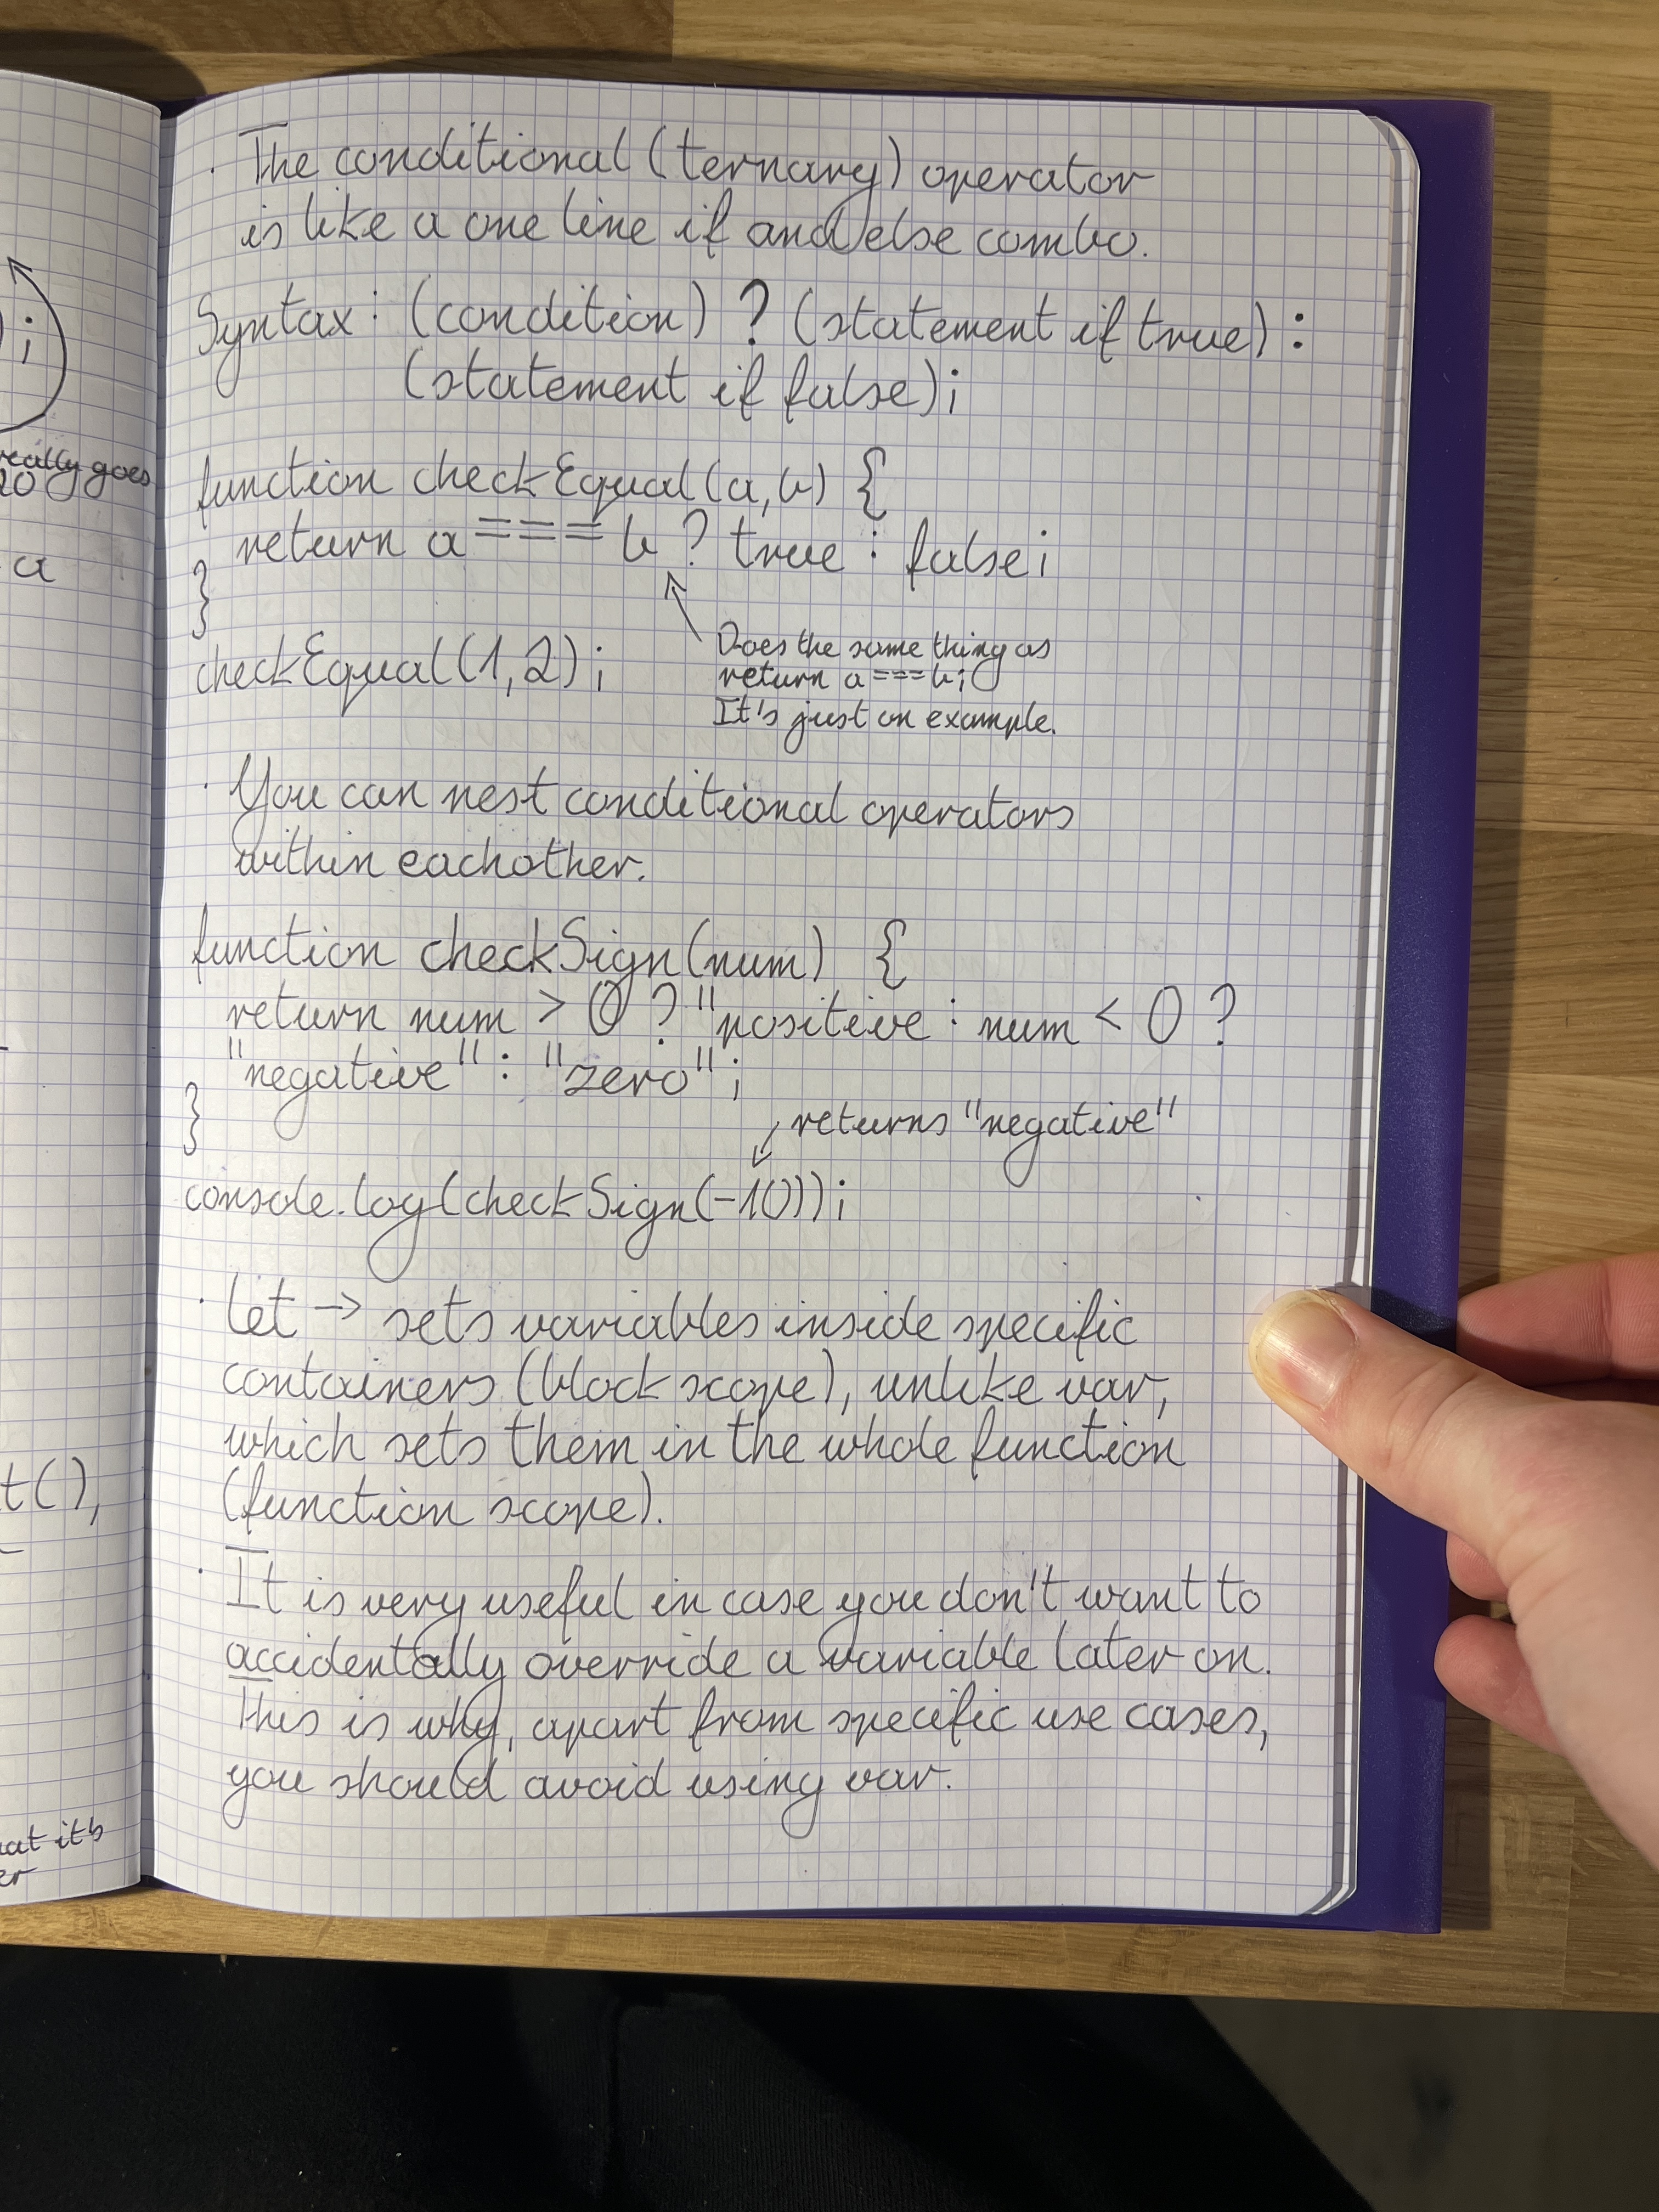 ) ;
really goes
20
a
t(),
hat it's
er
· The conditional (ternary) operator
is like a one line if and else combo.
Syntax: (condition) ? (statement if true) :
(statement if false);
function checkEqual(a,b) {
return a === b ? true : false;
}
checkEqual(1,2);
Does the same thing as
return a === b;
It's just an example.
· You can nest conditional operators
within eachother.
function checkSign(num) {
return num > 0 ? "positive : num < 0 ?
"negative" : "zero";
}
returns "negative"
console.log(checkSign(-10));
· let → sets variables inside specific
containers (block scope), unlike var,
which sets them in the whole function
(function scope).
· It is very useful in case you don't want to
accidentally override a variable later on.
This is why, apart from specific use cases,
you should avoid using var.